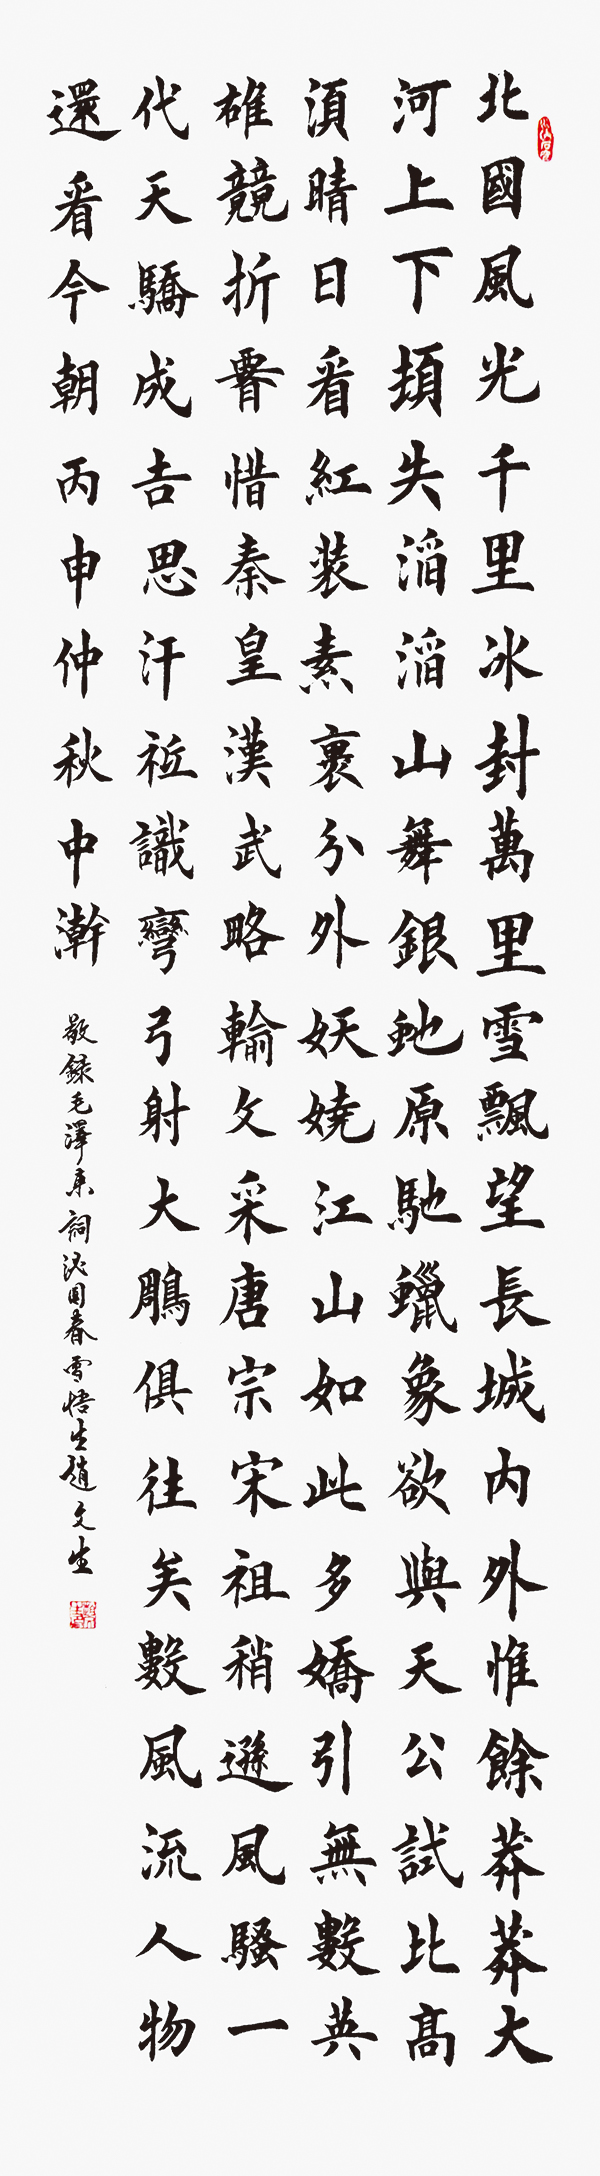 北國風光千里冰封萬里雪飄望長城内外惟餘莽莽大
河上下頓失滔滔山舞銀虵原馳蠟象欲與天公試比髙
須晴日看紅裝素裹分外妖嬈江山如此多嬌引無數英
雄競折腰惜秦皇漢武略輸文采唐宗宋祖稍遜風騷一
代天驕成吉思汗祗識彎弓射大鵰俱往矣數風流人物
還看今朝丙申仲秋中澣
敬録毛澤東詞沁園春雪悟生趙文生